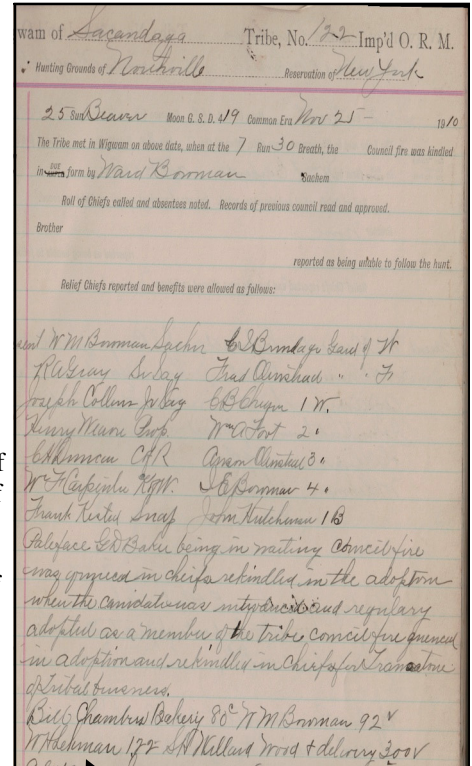 wam of Sacandaga Tribe, No. 122 Imp'd O. R. M.
Hunting Grounds of Northville Reservation of New York
25 Sun Beaver Moon G. S. D. 419 Common Era Nov 25- 1910
The Tribe met in Wigwam on above date, when at the 7 Run 30 Breath, the Council fire was kindled
in due form by Ward Bowman Sachem
Roll of Chiefs called and absentees noted. Records of previous council read and approved.
Brother
reported as being unable to follow the hunt.
Relief Chiefs reported and benefits were allowed as follows:
sent W M Bowman Sachm C S Brundage Gard of W
R W Gray Sr Sag Frad Olmshad " " Fr
Joseph Collins Jr Sag C B 1 W.
Henry Weave Prop. Wm A Fort 2 "
C H Duncan C of R Anson Olmstad 3 "
Wm F Carpinter K of W. Bowman 4 "
Frank Kested Snap John Hutchinson 1 B
Paleface G D Baker being in waiting council fire
was qunced in chiefs rekindled in the adoption
when the canidate was and regulary
adopted as a member of the tribe council fire quenced
in adoption and rekindled in Chiefs for
of Tribal business.
Bill Chambers Bakery 80c W M Bowman 92
W H Lehman 122 S H Willard Wood & delivery 300